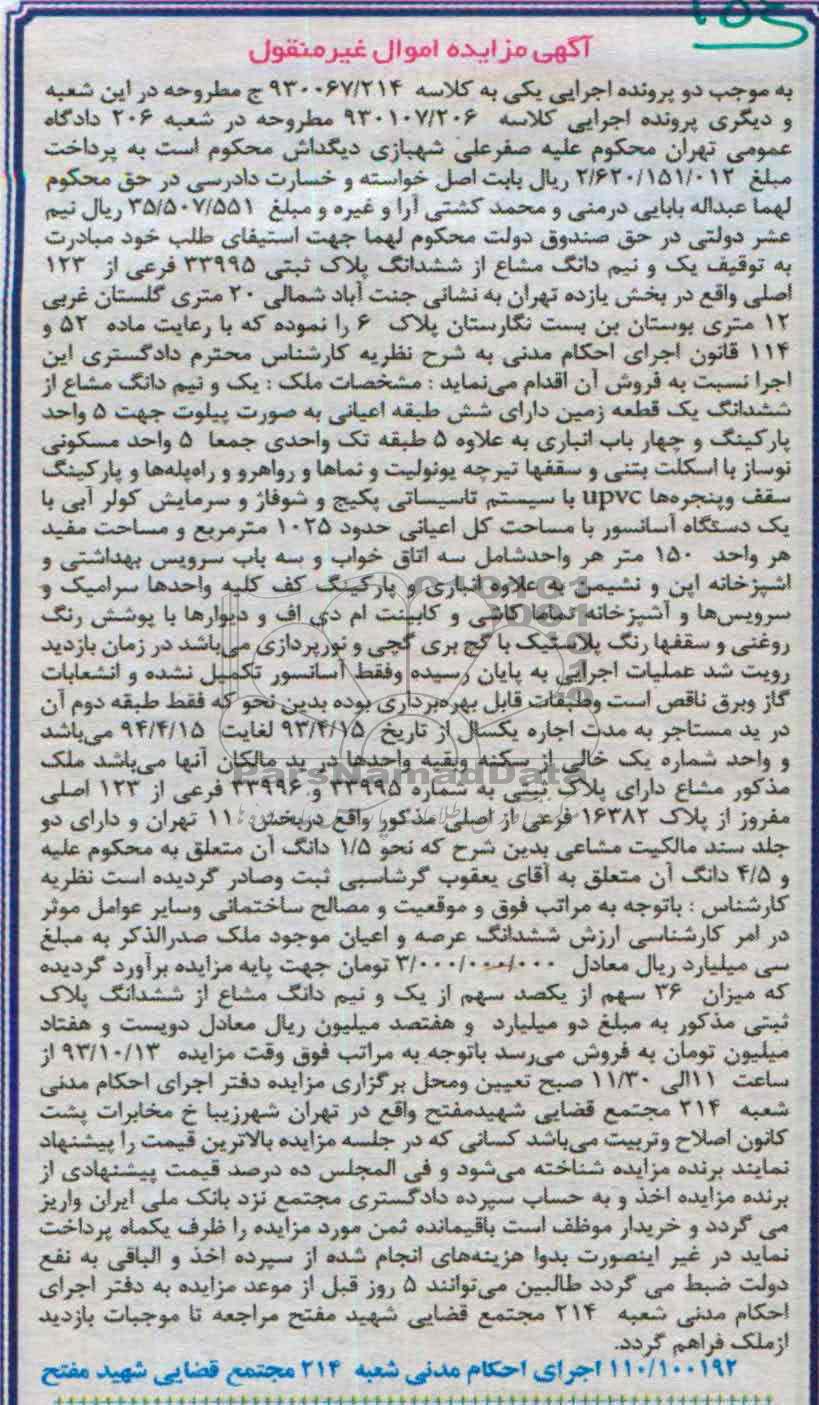 ۲۵۶
آگهی مزایده اموال غیرمنقول
به موجب دو پرونده اجرایی یکی به کلاسه ۹۳۰۰۶۷/۲۱۴ ج مطروحه در این شعبه
و دیگری پرونده اجرایی کلاسه ۹۳۰۱۰۷/۲۰۶ مطروحه در شعبه ۲۰۶ دادگاه
عمومی تهران محکوم علیه صفرعلی شهبازی دیگداش محکوم است به پرداخت
مبلغ ۲/۶۲۰/۱۵۱/۰۱۲ ریال بابت اصل خواسته و خسارت دادرسی در حق محکوم
لهما عبداله بابایی درمنی و محمد کشتی آرا و غیره و مبلغ ۳۵/۵۰۷/۵۵۱ ریال نیم
عشر دولتی در حق صندوق دولت محکوم لهما جهت استیفای طلب خود مبادرت
به توقیف یک و نیم دانگ مشاع از ششدانگ پلاک ثبتی ۳۳۹۹۵ فرعی از ۱۲۳
اصلی واقع در بخش یازده تهران به نشانی جنت آباد شمالی ۲۰ متری گلستان غربی
۱۲ متری بوستان بن بست نگارستان پلاک ۶ را نموده که با رعایت ماده ۵۲ و
۱۱۴ قانون اجرای احکام مدنی به شرح نظریه کارشناس محترم دادگستری این
اجرا نسبت به فروش آن اقدام می‌نماید : مشخصات ملک : یک و نیم دانگ مشاع از
ششدانگ یک قطعه زمین دارای شش طبقه اعیانی به صورت پیلوت جهت ۵ واحد
پارکینگ و چهار باب انباری به علاوه ۵ طبقه تک واحدی جمعا ۵ واحد مسکونی
نوساز با اسکلت بتنی و سقفها تیرچه یونولیت و نماها و رواهرو و راه‌پله‌ها و پارکینگ
سقف وپنجره‌ها upvc با سیستم تاسیساتی پکیج و شوفاژ و سرمایش کولر آبی با
یک دستگاه آسانسور با مساحت کل اعیانی حدود ۱۰۲۵ مترمربع و مساحت مفید
هر واحد ۱۵۰ متر هر واحدشامل سه اتاق خواب و سه باب سرویس بهداشتی و
اشپزخانه اپن و نشیمن به علاوه انباری و پارکینگ کف کلیه واحدها سرامیک و
سرویس‌ها و آشپزخانه تماما کاشی و کابینت ام دی اف و دیوارها با پوشش رنگ
روغنی و سقفها رنگ پلاستیک با گچ بری گچی و نورپردازی می‌باشد در زمان بازدید
رویت شد عملیات اجرایی به پایان رسیده وفقط آسانسور تکمیل نشده و انشعابات
گاز وبرق ناقص است وطبقات قابل بهره‌برداری بوده بدین نحو که فقط طبقه دوم آن
در ید مستاجر به مدت اجاره یکسال از تاریخ ۹۳/۴/۱۵ لغایت ۹۴/۴/۱۵ می‌باشد
و واحد شماره یک خالی از سکنه وبقیه واحدها در ید مالکان آنها می‌باشد ملک
ParsNamadData
مذکور مشاع دارای پلاک ثبتی به شماره ۳۳۹۹۵ و ۳۳۹۹۶ فرعی از ۱۲۳ اصلی
مفروز از پلاک ۱۶۳۸۲ فرعی از اصلی مذکور واقع دربخش ۱۱ تهران و دارای دو
جلد سند مالکیت مشاعی بدین شرح که نحو ۱/۵ دانگ آن متعلق به محکوم علیه
و ۴/۵ دانگ آن متعلق به آقای یعقوب گرشاسبی ثبت وصادر گردیده است نظریه
کارشناس : باتوجه به مراتب فوق و موقعیت و مصالح ساختمانی وسایر عوامل موثر
در امر کارشناسی ارزش ششدانگ عرصه و اعیان موجود ملک صدرالذکر به مبلغ
سی میلیارد ریال معادل ۳/۰۰۰/۰۰۰/۰۰۰ تومان جهت پایه مزایده برآورد گردیده
که میزان ۳۶ سهم از یکصد سهم از یک و نیم دانگ مشاع از ششدانگ پلاک
ثبتی مذکور به مبلغ دو میلیارد و هفتصد میلیون ریال معادل دویست و هفتاد
میلیون تومان به فروش می‌رسد باتوجه به مراتب فوق وقت مزایده ۹۳/۱۰/۱۳ از
ساعت ۱۱الی ۱۱/۳۰ صبح تعیین ومحل برگزاری مزایده دفتر اجرای احکام مدنی
شعبه ۲۱۴ مجتمع قضایی شهیدمفتح واقع در تهران شهرزیبا خ مخابرات پشت
کانون اصلاح وتربیت می‌باشد کسانی که در جلسه مزایده بالاترین قیمت را پیشنهاد
نمایند برنده مزایده شناخته می‌شود و فی المجلس ده درصد قیمت پیشنهادی از
برنده مزایده اخذ و به حساب سپرده دادگستری مجتمع نزد بانک ملی ایران واریز
می گردد و خریدار موظف است باقیمانده ثمن مورد مزایده را ظرف یکماه پرداخت
نماید در غیر اینصورت بدوا هزینه‌های انجام شده از سپرده اخذ و الباقی به نفع
دولت ضبط می گردد طالبین می‌توانند ۵ روز قبل از موعد مزایده به دفتر اجرای
احکام مدنی شعبه ۲۱۴ مجتمع قضایی شهید مفتح مراجعه تا موجبات بازدید
ازملک فراهم گردد.
۱۱۰/۱۰۰۱۹۲ اجرای احکام مدنی شعبه ۲۱۴ مجتمع قضایی شهید مفتح